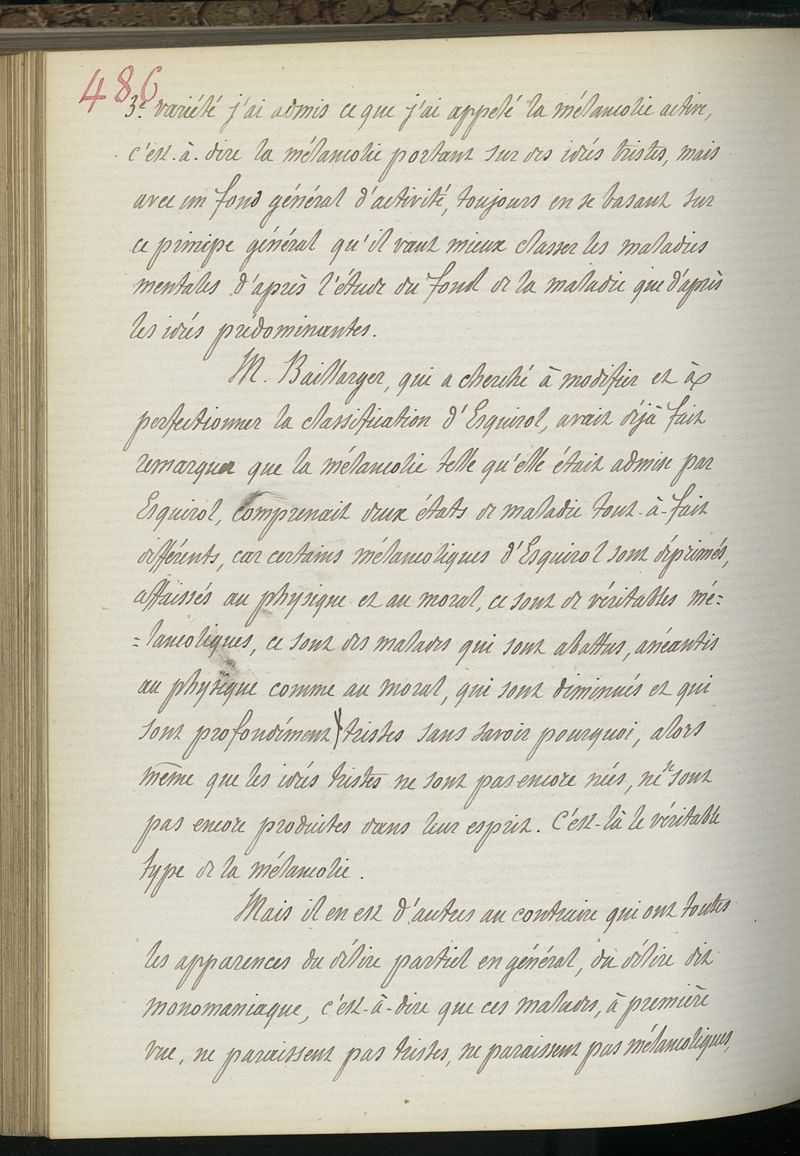 486
3e variété j'ai admis ce que j'ai appelé la mélancolie active,
c'est-à-dire la mélancolie portant sur des idées tristes, mais
avec un fond général d'activité, toujours en se basant sur
ce principe général qu'il vaut mieux classer les maladies
mentales d'après l'étude du fond de la maladie que d'après
les idées prédominantes.
M. Baillarger, qui a cherché à modifier et à
perfectionner la classification d'Esquirol, avait déjà fait
remarquer que la mélancolie telle qu'elle était admise par
Esquirol, comprenait deux états de maladie tout-à-fait
différents, car certains mélancoliques d'Esquirol sont déprimés,
affaissés au physique et au moral, ce sont de véritables mé=
=lancoliques, ce sont des malades qui sont abattus, anéantis
au physique comme au moral, qui sont diminués et qui
sont profondément tristes sans savoir pourquoi, alors
même que les idées tristes ne sont pas encore nées, ne se sont
pas encore produites dans leur esprit. C'est-là le véritable
type de la mélancolie.
Mais il en est d'autres au contraire qui ont toutes
les apparences du délire partiel en général, du délire dit
monomaniaque, c'est-à-dire que ces malades, à première
vue, ne paraissent pas tristes, ne paraissent pas mélancoliques,